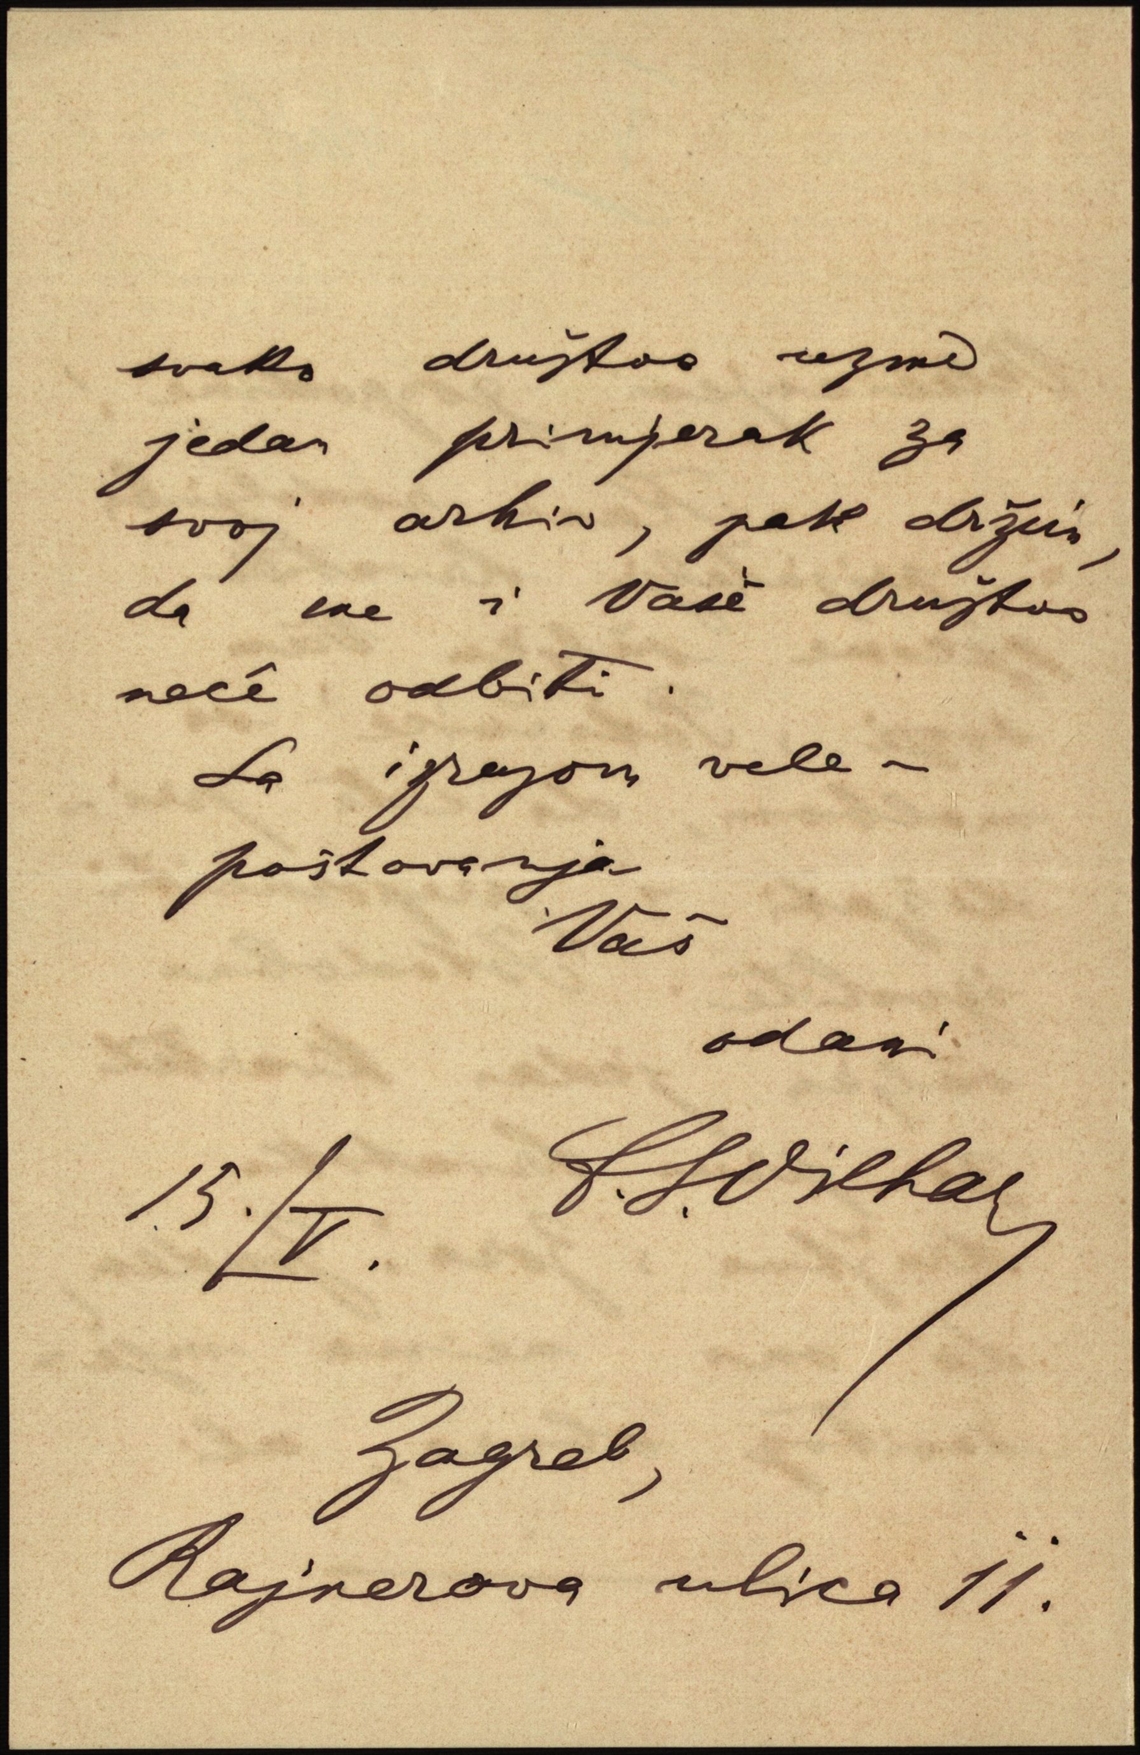 svako društvo uzme
jedan primjerak za
svoj arhiv, pak držim,
da me i Vaše društvo
neće odbiti.
Sa izrazom vele-
poštovanja
Vaš
odani
F. S. Vilhar
15./V.
Zagreb,
Rajnerova ulica 11.